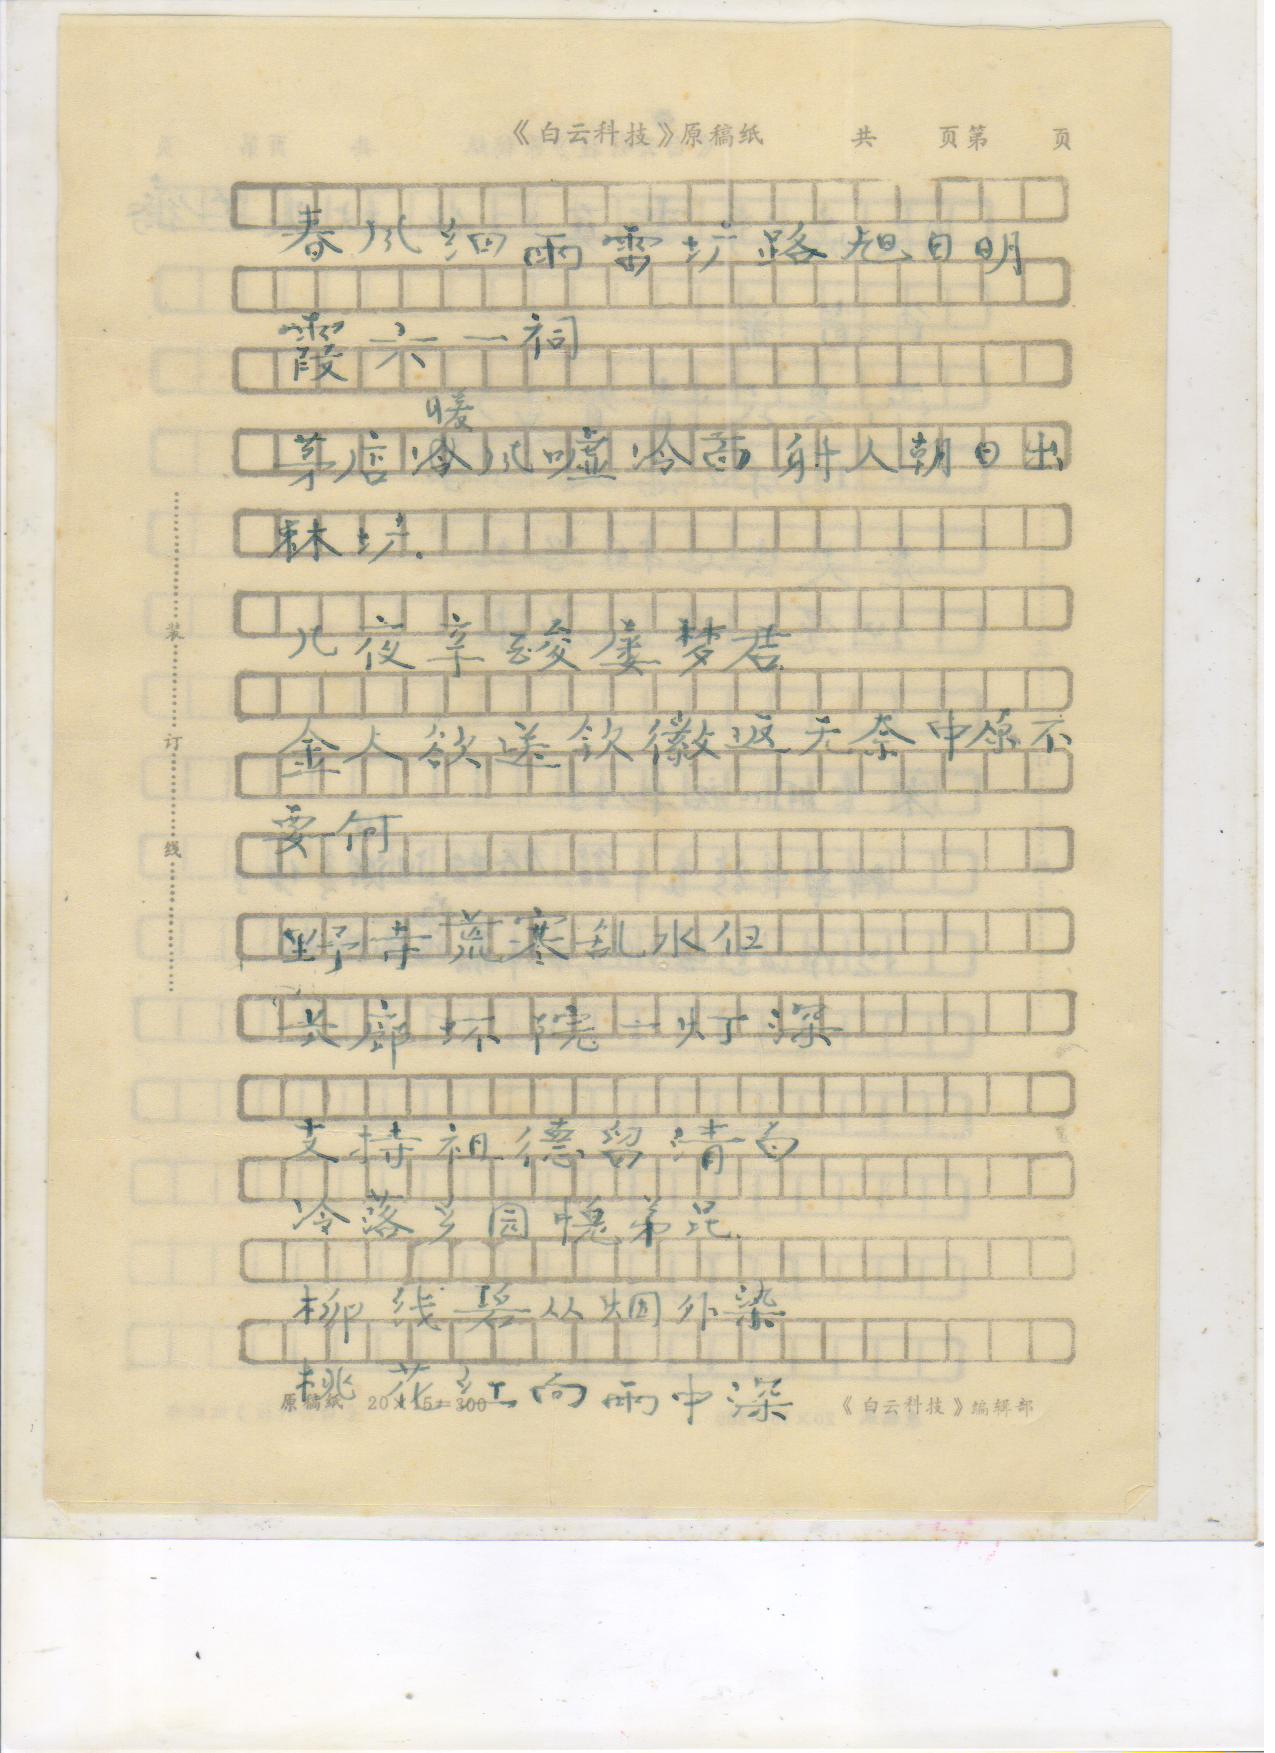 《白云科技》原稿纸 共 页第 页
春风细雨雷坊路旭日明
霞六一祠
暖
茅店冷风嘘冷面射人朝日出
林坊.
几夜辛酸屡梦君
金人欲送钦徽返无奈中原不
要何
野寺荒寒乱水但
长廊坏院一灯深
支持祖德留清白
冷落乡园愧弟昆.
柳线碧从烟外染
桃花红向雨中深
原稿纸 20×15=300 《白云科技》编辑部
装 订 线